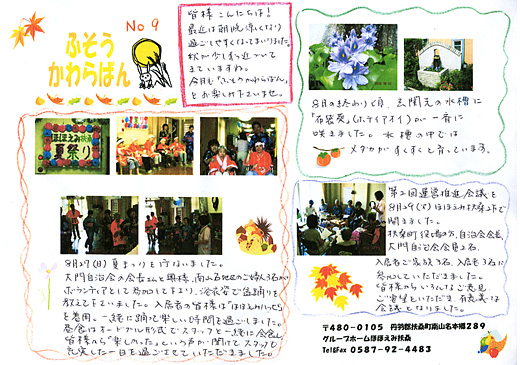 No 9
ふそう
かわらばん
皆様 こんにちは!
最近は朝晩涼しくなり
過ごしやすくなってまいりました。
秋が少しずつ近づいて
きていますね。
今月も「ふそうのかわらばん」
をお楽しみ下さいませ。
ほほえみ扶桑
夏祭り
8月の終わり頃 玄関先の水槽に
「布袋葵」(ホテイアオイ)が一斉に
咲きました。水槽の中では
メダカがすくすくと育っています。
8月29(日)夏まつりを行ないました。
大門自治会の会長さんと奥様、南山名地区のご婦人3名が
ボランティアとして参加して下さり、浴衣姿で盆踊りを
教えて下さいました。入居者の皆様は「ほほえみはっぴ」
を着用。一緒に踊り楽しい時間を過ごしました。
昼食はオードブル形式でスタッフと一緒に会食し
皆様から「楽しかった」という声が聞けてスタッフも
充実した一日を過ごさせていただきました。
第2回運営推進会議を
8月29(火)ほほえみ扶桑2Fで
開きました。
扶桑町役場の方、自治会会長
大門自治会会員2名、
入居者ご家族3名、入居者3名に
参加していただきました。
皆様からいろんなご意見
ご要望をいただき、有意義な
会議となりました。
〒480-0105 丹羽郡扶桑町南山名本郷289
グループホームほほえみ扶桑
Tel&Fax 0587-92-4483